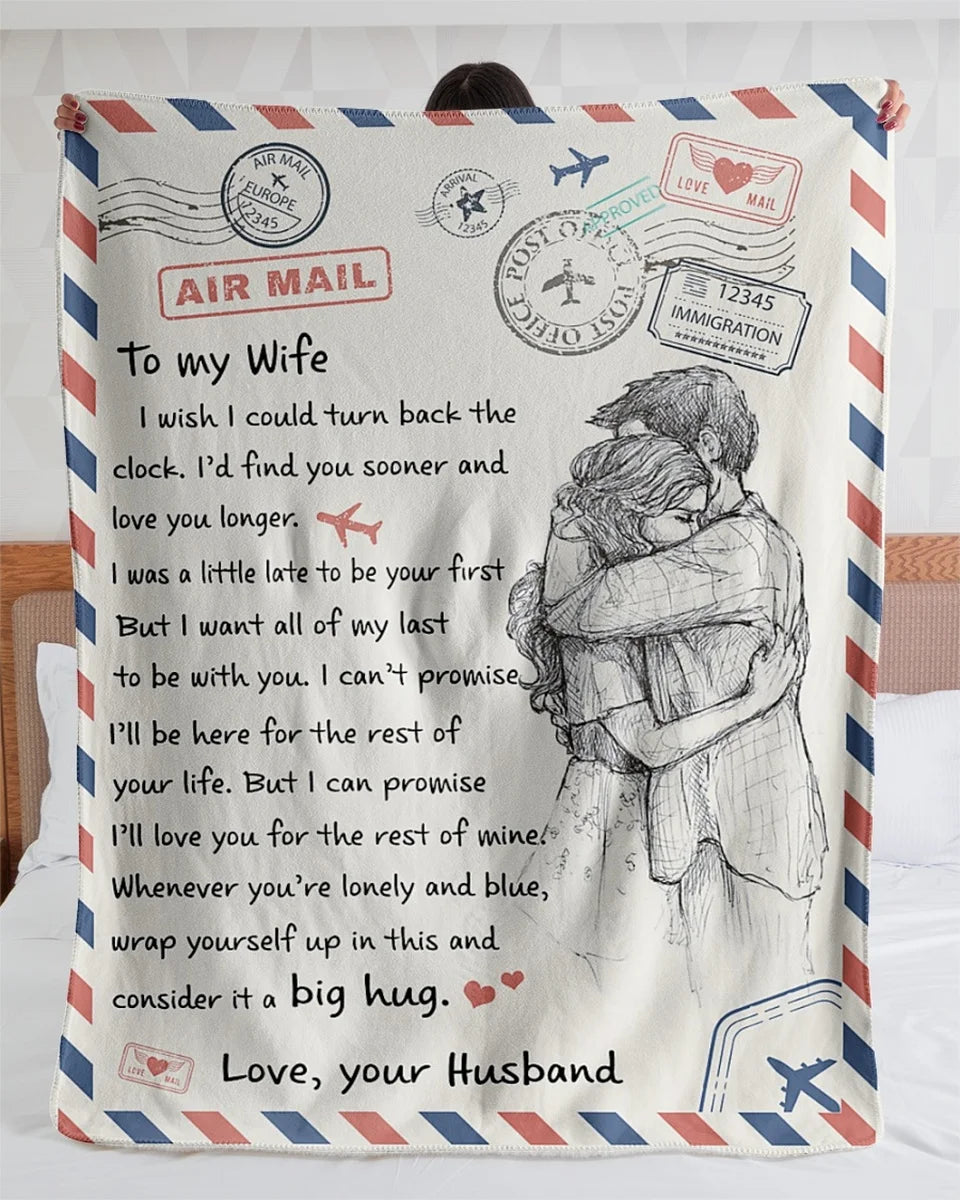 AIR MAIL
EUROPE
12345
ARRIVAL
12345
APPROVED
LOVE MAIL
POST OFFICE POST OFFICE
12345
IMMIGRATION
AIR MAIL
To my Wife
I wish I could turn back the
clock. I'd find you sooner and
love you longer.
I was a little late to be your first
But I want all of my last
to be with you. I can't promise
I'll be here for the rest of
your life. But I can promise
I'll love you for the rest of mine.
Whenever you're lonely and blue,
wrap yourself up in this and
consider it a big hug.
LOVE MAIL
Love, your Husband